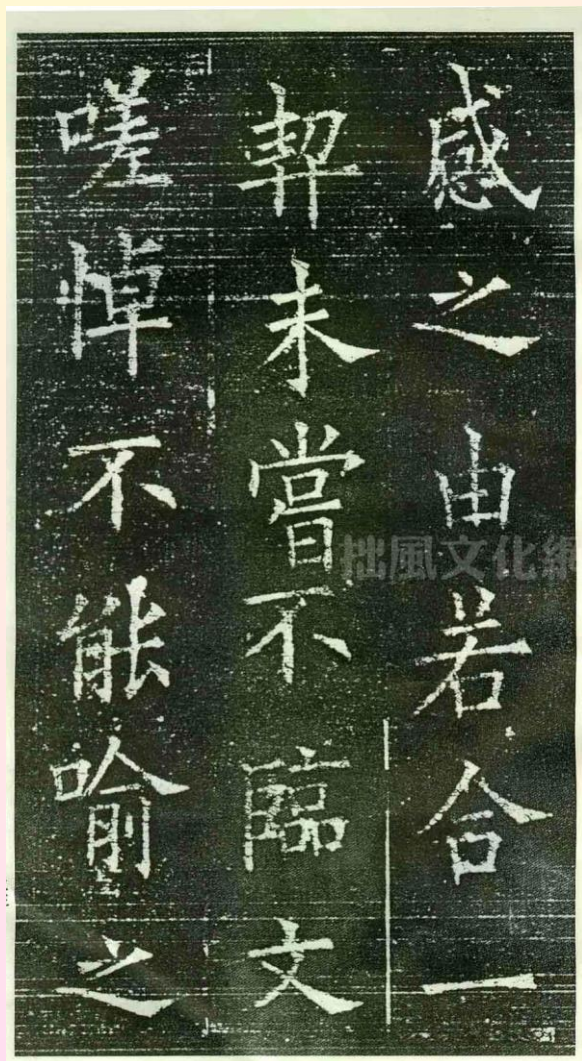 感之由若合一
契未嘗不臨文
嗟悼不能喻之
拙風文化網